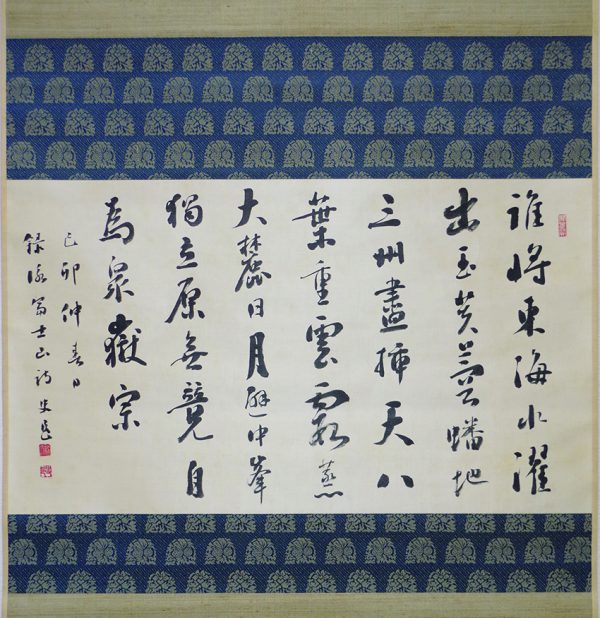 誰將東海水濯
出玉芙蓉蟠地
三州盡挿天八
葉重雲霞蒸
大麓日月避中峯
獨立原無競自
為衆嶽宗
己卯仲春日
録詠富士山詩